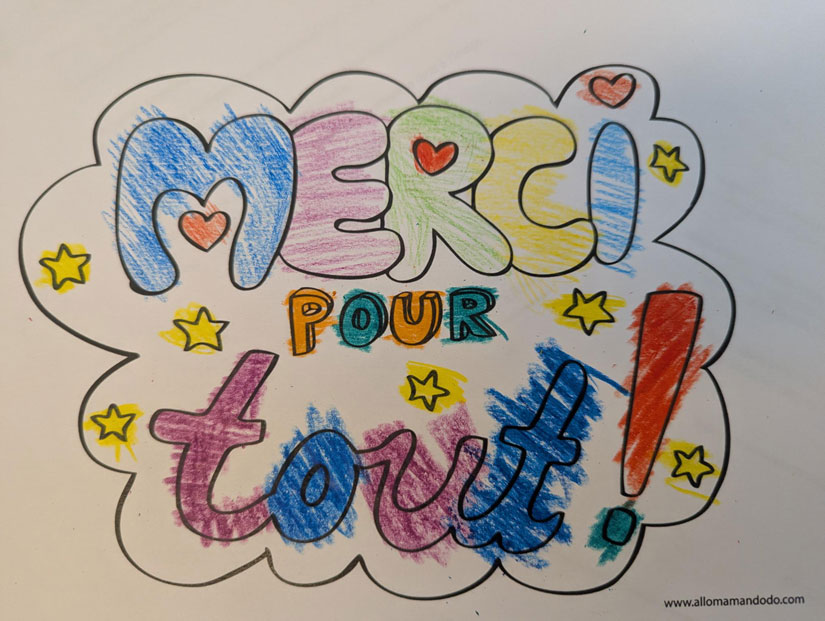 MERCI
POUR
tout!
www.allomamandodo.com